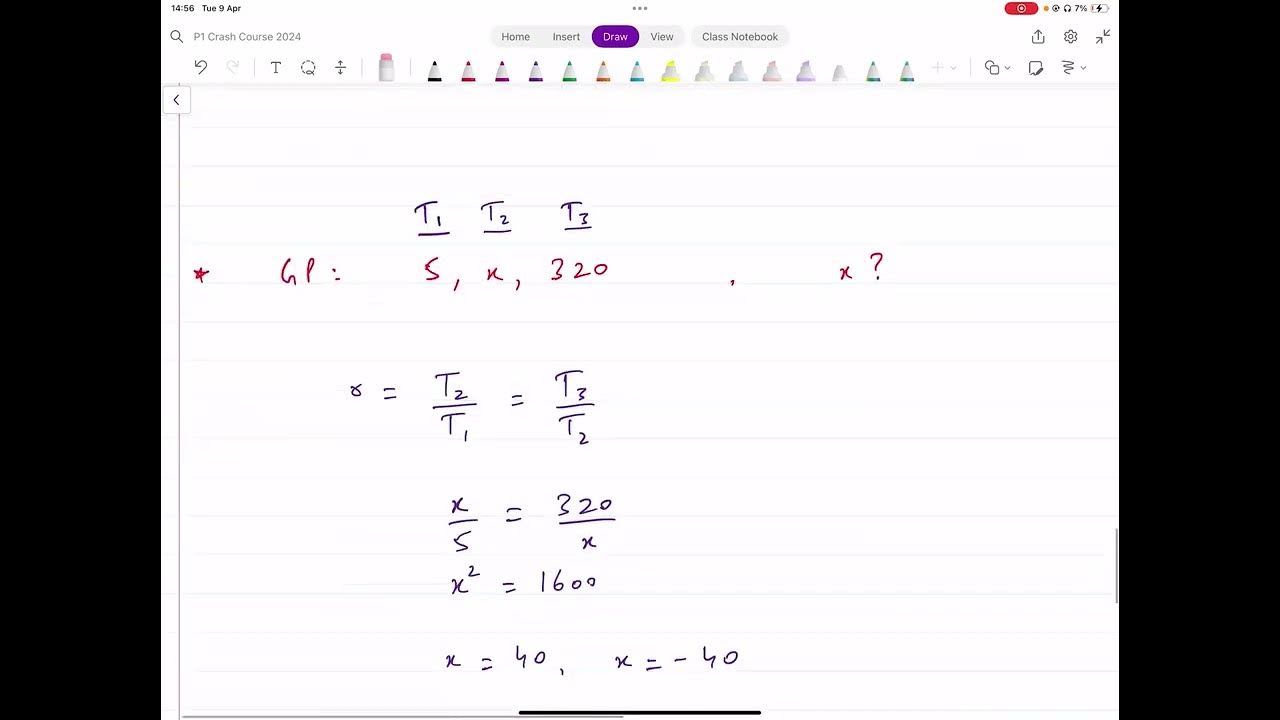 14:56 Tue 9 Apr 7%
P1 Crash Course 2024 Home Insert Draw View Class Notebook
T
T₁ T₂ T₃
* GP: 5, x, 320 , x ?
r = T₂/T₁ = T₃/T₂
x/5 = 320/x
x² = 1600
x = 40, x = -40